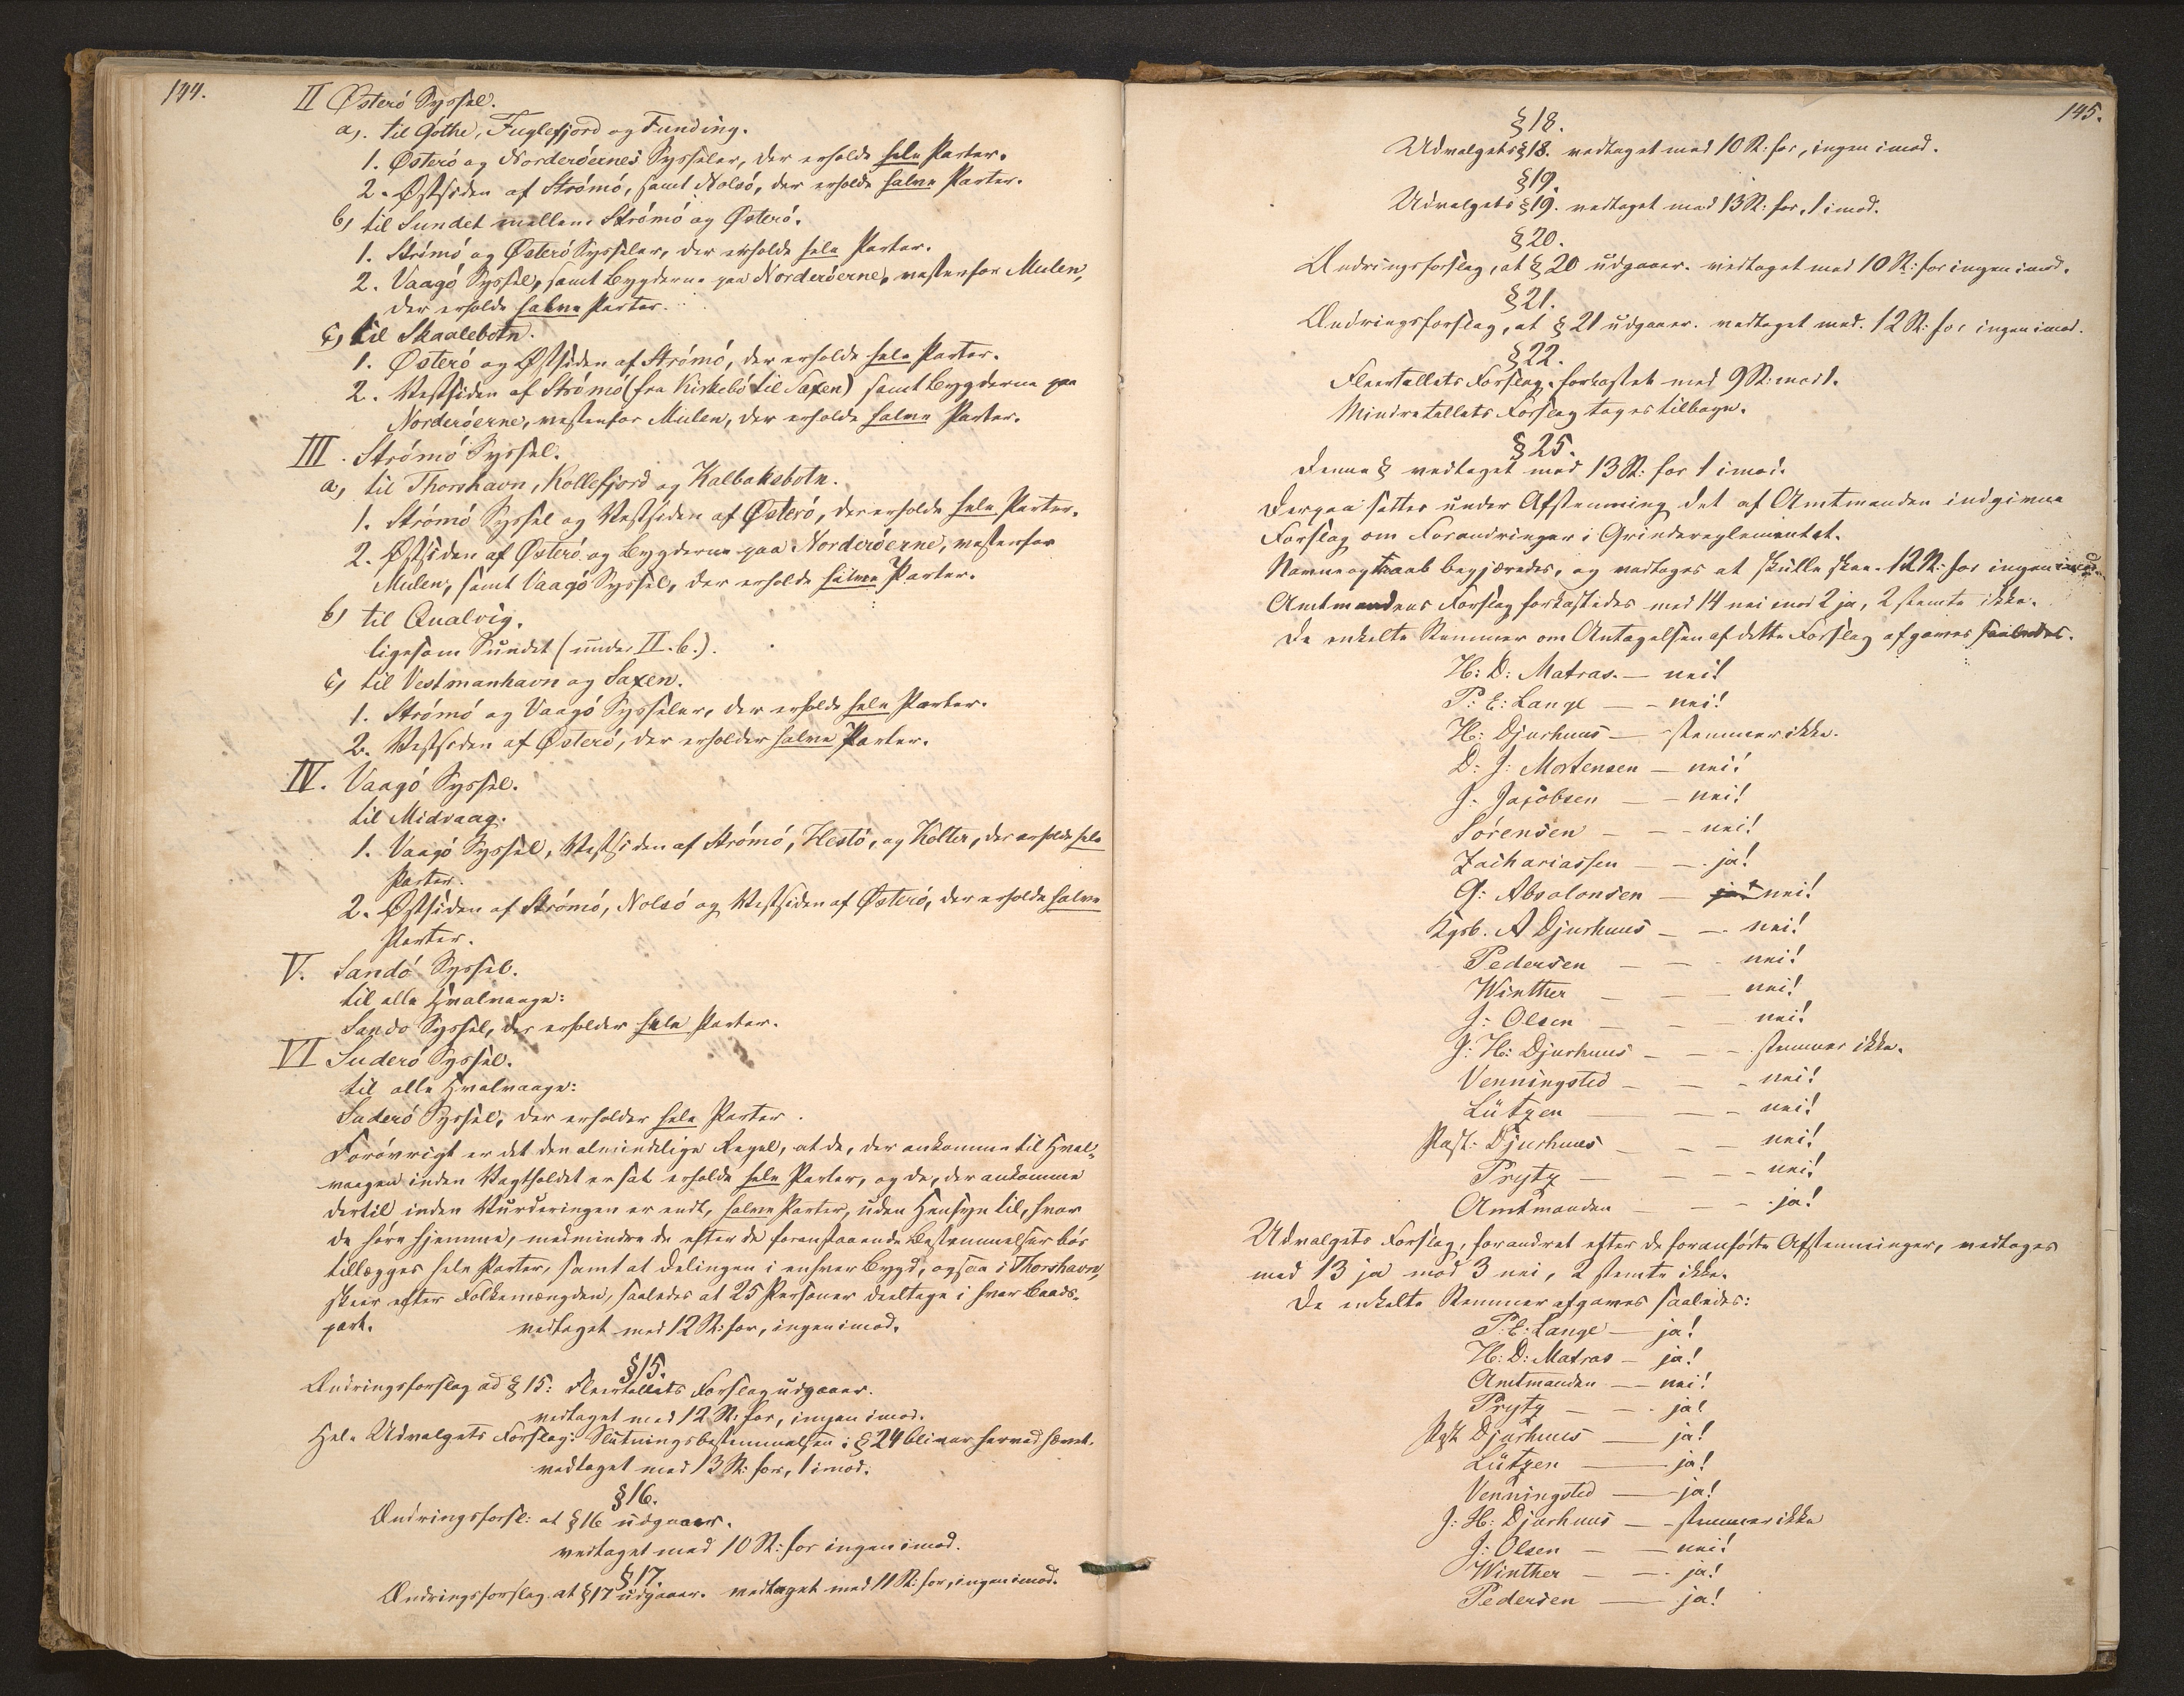 144.
II Østerö Syssel.
a, til Göthe, Fuglefjord og Funding.
1. Østerö og Norderöernes Sysseler, der erholde hele Parter.
2. Østsiden af Strömö, samt Nolsö, der erholde halve Parter.
b, til Sundet mellem Strömö og Østerö.
1. Strömö og Østerö Sysseler, der erholde hele Parter.
2. Vaagö Syssel, samt Bygderne paa Norderöerne, vestenfor Mulen,
der erholde halve Parter.
c, til Skaalebotn.
1. Østerö og Østsiden af Strömö, der erholde hele Parter.
2. Vestsiden af Strömö (fra Kirkebö til Saxen) samt Bygderne paa
Norderöerne, vestenfor Mulen, der erholde halve Parter.
III. Strömö Syssel.
a, til Thorshavn, Kollefjord og Kalbaksbotn.
1. Strömö Syssel og Vestsiden af Østerö, der erholde hele Parter.
2. Østsiden af Østerö og Bygderne paa Norderöerne, vestenfor
Mulen, samt Vaagö Syssel, der erholde halve Parter.
b, til Qualvig.
ligesom Sundet (under II. b.).
c, til Vestmanhavn og Saxen.
1. Strömö og Vaagö Sysseler, der erholde hele Parter.
2. Vestsiden af Østerö, der erholder halve Parter.
IV. Vaagö Syssel.
til Midvaag.
1. Vaagö Syssel, Vestsiden af Strömö, Hestö, og Kolter, der erholde hele
Parter.
2. Østsiden af Strömö, Nolsö og Vestsiden af Østerö, der erholde halve
Parter.
V. Sandö Syssel.
til alle Hvalvaage:
Sandö Syssel, der erholder hele Parter.
VI Suderö Syssel.
til alle Hvalvaage:
Suderö Syssel, der erholder hele Parter.
Forövrigt er det den almindelige Regel, at de, der ankomme til Hval-
vaagen inden Vagtholdet er sat erholde hele Parter, og de, der ankomme
dertil inden Vurderingen er endt, halve Parter, uden Hensyn til, hvor
de höre hjemme, medmindre de efter de foranstaaende Bestemmelser bör
tillægges hele Parter, samt at Delingen i enhver Bygd, ogsaa i Thorshavn,
skeer efter Folkemængden, saaledes at 25 Personer deeltage i hver Baads-
part. vedtaget med 12 St: for, ingen imod.
§15.
Ændringsforslag ad §15: Fleertallets Forslag udgaaer.
vedtaget med 12 St: for, ingen imod.
Hele Udvalgets Forslag: Slutningsbestemmelsen i §24 bliver herved hævet.
vedtaget med 13 St: for, 1 imod.
§16.
Ændringsforsl: at §16 udgaaer.
vedtaget med 10 St: for ingen imod.
§17.
Ændringsforslag at §17 udgaaer. vedtaget med 11 St: for, ingen imod.
145.
§18.
Udvalgets §18. vedtaget med 10 St: for, ingen imod.
§19.
Udvalgets §19. vedtaget med 13 St: for, 1 imod.
§20.
Ændringsforslag, at §20 udgaaer. vedtaget med 10 St: for ingen imod.
§21.
Ændringsforslag, at §21 udgaaer. vedtaget med. 12 St: for ingen imod.
§22.
Fleertallets Forslag. forkastet med 9 St: mod 1.
Mindretallets Forslag tages tilbage.
§25.
Denne § vedtaget med 13 St: for 1 imod.
Derpaa sattes under Afstemning det af Amtmanden indgivne
Forslag om Forandringer i Grindereglementet.
Navneopraab begjæredes, og vedtoges at skulle skee. 12 St: for ingen imod.
Amtmandens Forslag forkastedes med 14 nei mod 2 ja, 2 stemte ikke.
De enkelte Stemmer om Antagelsen af dette Forslag afgaves saaledes.
H: D: Matras. — nei!
P: E: Lange — — nei!
H: Djurhuus — stemmer ikke.
D: J: Mortensen — nei!
J: Jacobsen — — nei!
Sörensen — — — nei!
Zachariassen — — ja!
G: Absolonsen — ja! nei!
Kgsb. A Djurhuus — — nei!
Pedersen — — nei!
Winther — — nei!
J: Olsen — — nei!
J: H: Djurhuus — — — stemmer ikke.
Venningsted — — — nei!
Lützen — — — nei!
Past: Djurhuus — — — nei!
Prytz — — — nei!
Amtmanden — — — ja!
Udvalgets Forslag, forandret efter de foranförte Afstemninger, vedtoges
med 13 ja mod 3 nei, 2 stemte ikke.
De enkelte Stemmer afgaves saaledes:
P: E: Lange — ja!
H: D: Matras — ja!
Amtmanden — — nei!
Prytz — — ja!
Past Djurhuus — ja!
Lützen — ja!
Venningsted — ja!
J: H: Djurhuus — — stemmer ikke
J: Olsen — — nei!
Winther — — ja!
Pedersen — ja!